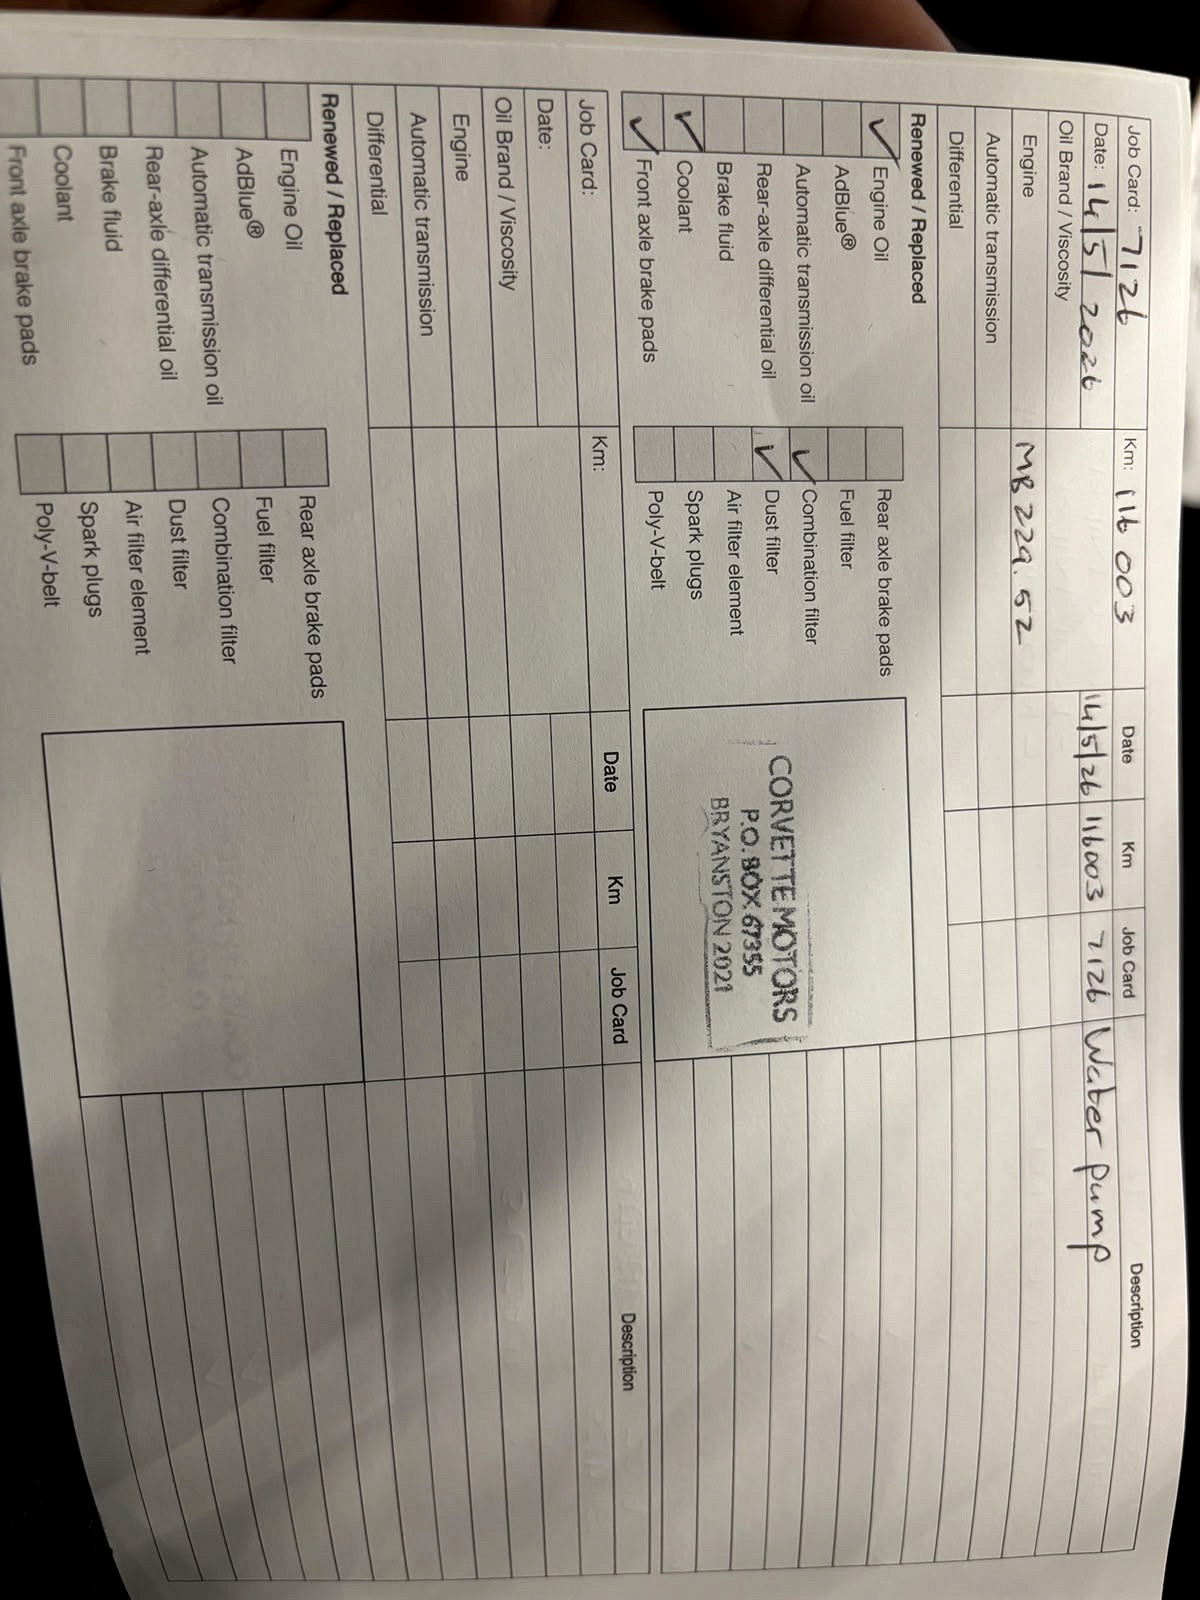 Job Card: 7126 Km: 116 003 Date Km Job Card Description
Date: 14/5/2026 14/5/26 116003 7126 Water pump
Oil Brand / Viscosity
Engine MB 229.52
Automatic transmission
Differential
Renewed / Replaced
Engine Oil Rear axle brake pads
AdBlue® Fuel filter
Automatic transmission oil Combination filter
Rear-axle differential oil Dust filter
Brake fluid Air filter element
Coolant Spark plugs
Front axle brake pads Poly-V-belt
CORVETTE MOTORS
P.O. BOX 67355
BRYANSTON 2021
Job Card: Km: Date Km Job Card Description
Date:
Oil Brand / Viscosity
Engine
Automatic transmission
Differential
Renewed / Replaced
Engine Oil Rear axle brake pads
AdBlue® Fuel filter
Automatic transmission oil Combination filter
Rear-axle differential oil Dust filter
Brake fluid Air filter element
Coolant Spark plugs
Front axle brake pads Poly-V-belt